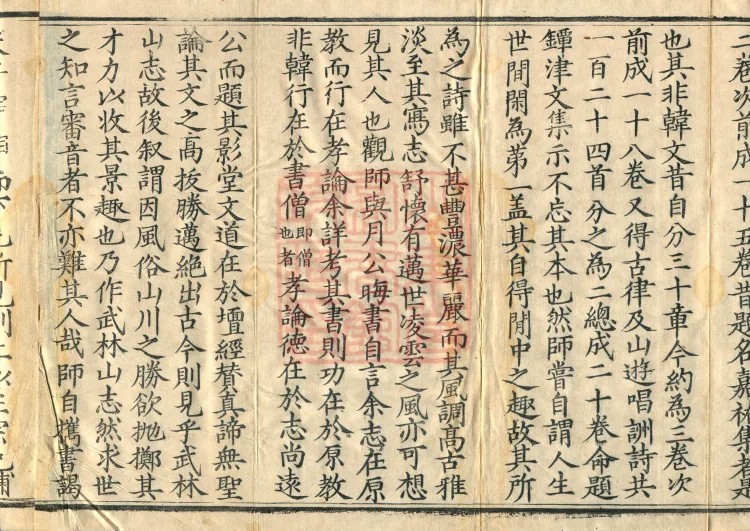 二卷次前成一十五卷昔題名嘉祐集者是
也其非韓文昔自分三十章今約為三卷次
前成一十八卷又得古律及山遊唱詶詩共
一百二十四首分之為二總成二十卷命題
鐔津文集示不忘其本也然師嘗自謂人生
世間閑為第一盖其自得閒中之趣故其所
為之詩雖不甚豊濃華麗而其風調高古雅
淡至其寫志舒懷有邁世凌雲之風亦可想
見其人也觀師與月公晦書自言余志在原
教而行在孝論余詳考其書則功在於原教
非韓行在於書僧即僧也者孝論德在於志尚遠
公而題其影堂文道在於壇經賛真諦無聖
論其文之高抜勝邁絶出古今則見乎武林
山志故後叙謂因風俗山川之勝欲抛擲其
才力以收其景趣也乃作武林山志然求世
之知言審音者不亦難其人哉師自攜書謁